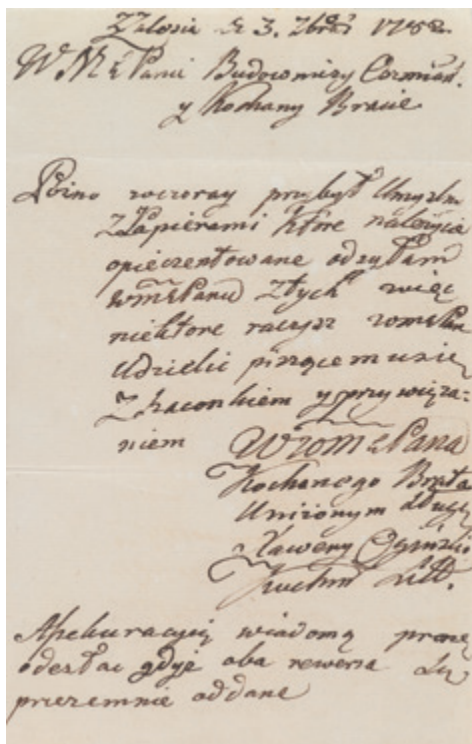 d. 3. 7bra
W M Pana Budowniczy
y Kochany Bracie
wczoray przybył Umyślny
z Papierami które należycie
opieczentowane odsyłam
wmsPanu Złych więc
niektore raczysz wmsPan
udzielic piszącemu się
z szacunkiem y przywiąza-
niem WWM Pana
Kochanego Brata
Uniżonym sługą
Xawery Ogiński
Kuchm Litt.
wiadomą proszę
odesłac gdyż oba rewersa
przezemnie oddane